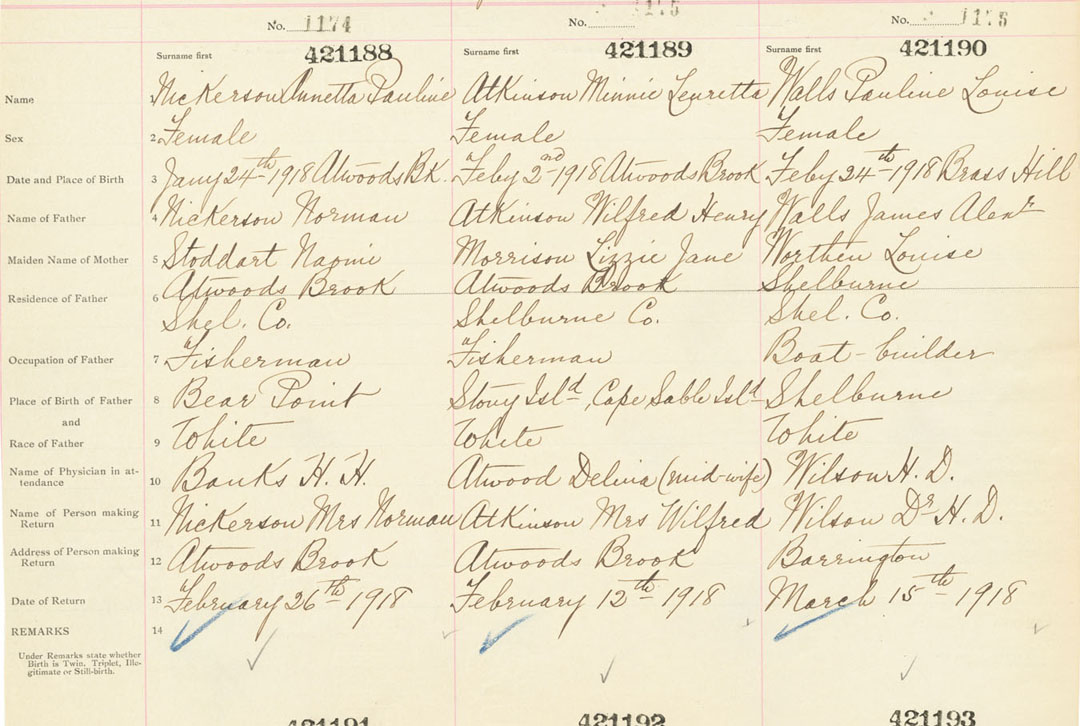 No. 1174 No. 1175 No. 1176
Surname first 421188 Surname first 421189 Surname first 421190
Name Nickerson Annetta Pauline Atkinson Minnie Leuretta Walls Pauline Louise
Sex 2 Female Female Female
Date and Place of Birth 3 Jany 24th 1918 Atwoods Bk. Feby 2nd 1918 Atwoods Brook Feby 24th 1918 Brass Hill
Name of Father 4 Nickerson Norman Atkinson Wilfred Henry Walls James Alexr
Maiden Name of Mother 5 Stoddart Naomi Morrison Lizzie Jane Worthen Louise
Residence of Father 6 Atwoods Brook Atwoods Brook Shelburne
Shel. Co. Shelburne Co. Shel. Co.
Occupation of Father 7 Fisherman Fisherman Boat-builder
Place of Birth of Father 8 Bear Point Stony Isld, Cape Sable Isld Shelburne
and
Race of Father 9 White White White
Name of Physician in at-
tendance 10 Banks H. H. Atwood Delina (mid-wife) Wilson H. D.
Name of Person making
Return 11 Nickerson Mrs Norman Atkinson Mrs Wilfred Wilson Dr H. D.
Address of Person making
Return 12 Atwoods Brook Atwoods Brook Barrington
Date of Return 13 February 26th 1918 February 12th 1918 March 15th 1918
REMARKS 14
Under Remarks state whether
Birth is Twin, Triplet, Ille-
gitimate or Still-birth.
421191 421192 421193